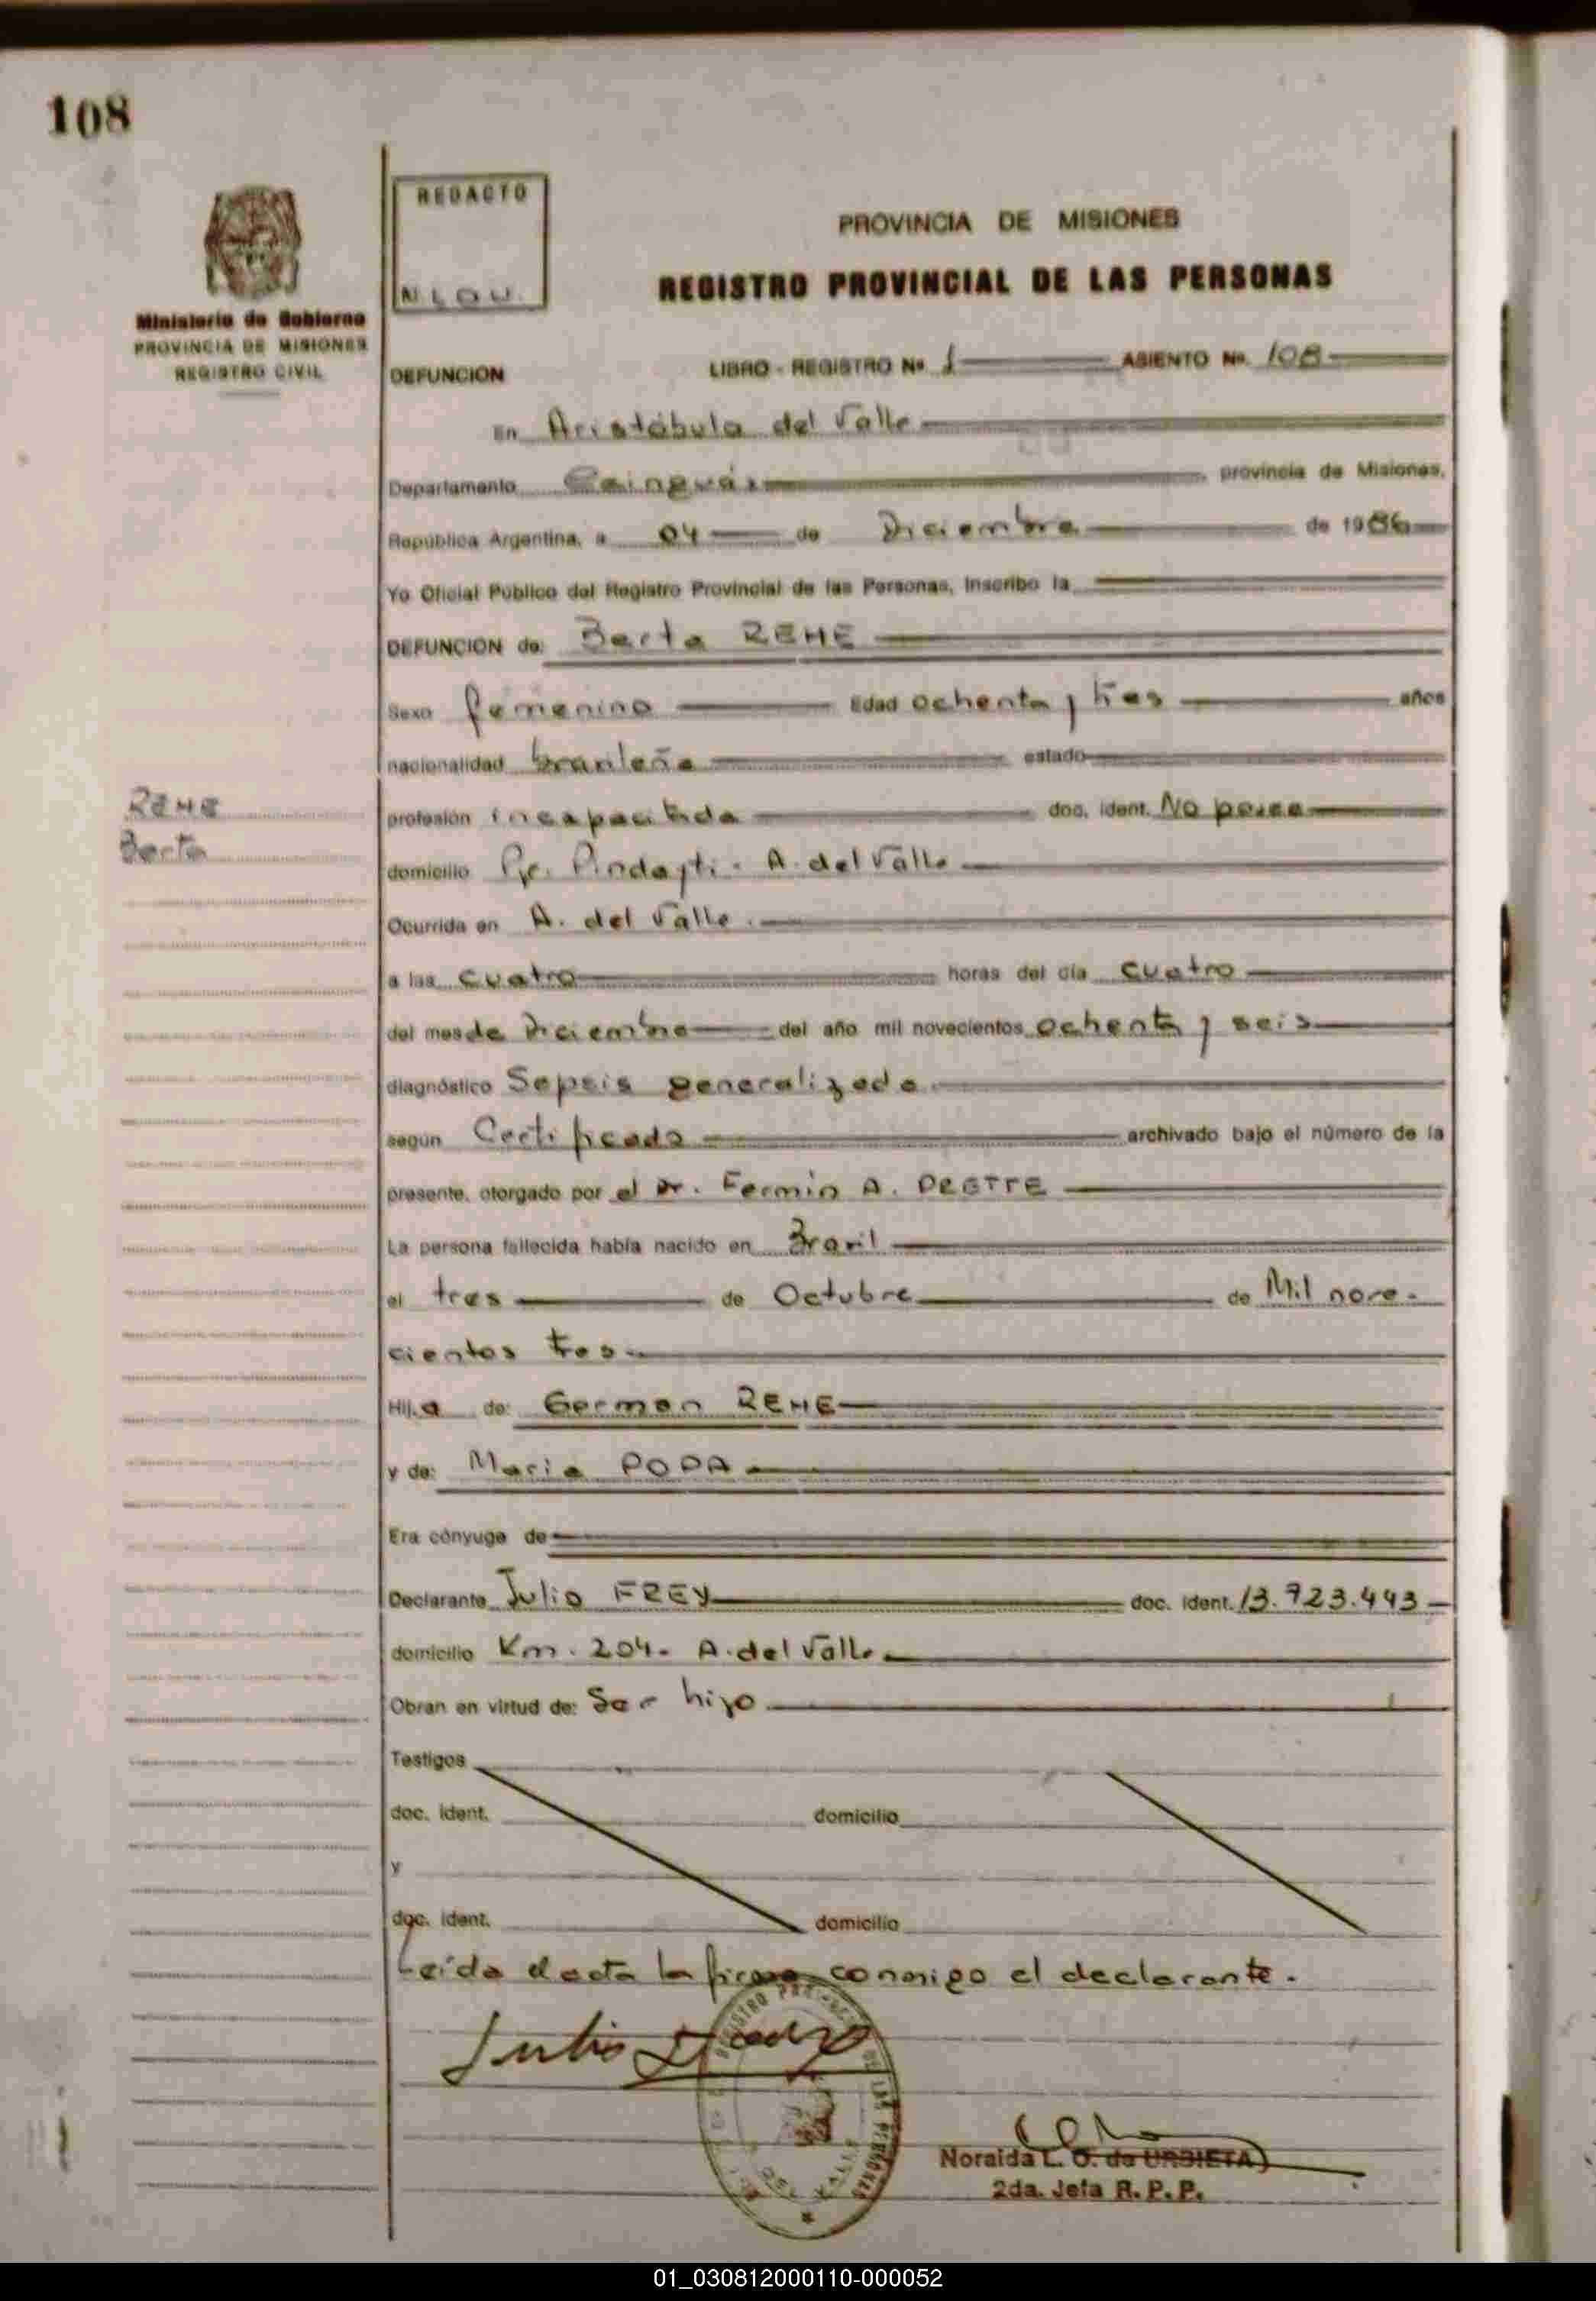 108
REDACTO
N L O U.
PROVINCIA DE MISIONES
REGISTRO PROVINCIAL DE LAS PERSONAS
Ministerio de Gobierno
PROVINCIA DE MISIONES
REGISTRO CIVIL
DEFUNCION LIBRO - REGISTRO No 1 ASIENTO No. 108
En Aristóbulo del Valle
Departamento Cainguás provincia de Misiones,
República Argentina, a 04 de Diciembre de 1986
Yo Oficial Público del Registro Provincial de las Personas, inscribo la
DEFUNCION de: Berta REHE
Sexo femenino Edad ochenta y tres años
nacionalidad brasileña estado
REHE
Berta
profesión incapacitada doc. ident. No posee
domicilio Pje. Pindayti - A. del Valle
Ocurrida en A. del Valle.
a las cuatro horas del día cuatro
del mes de Diciembre del año mil novecientos ochenta y seis
diagnóstico Sepsis generalizada
según Certificado archivado bajo el número de la
presente, otorgado por el Dr. Fermin A. PRETTE
La persona fallecida había nacido en Brasil
el tres de Octubre de Mil nove-
cientos tres
Hij a de: German REHE
y de: Maria POPA
Era cónyuge de
Declarante Julio FREY doc. ident. 13.723.443
domicilio Km. 204- A. del Valle
Obran en virtud de: Ser hijo
Testigos
doc. ident. domicilio
y
doc. ident. domicilio
Leida el acta la firma conmigo el declarante.
Julio
REGISTRO PROVINCIAL DE LAS PERSONAS
DEL VALLE
Noraida L. O. de URBIETA
2da. Jefa R. P. P.
01_030812000110-000052